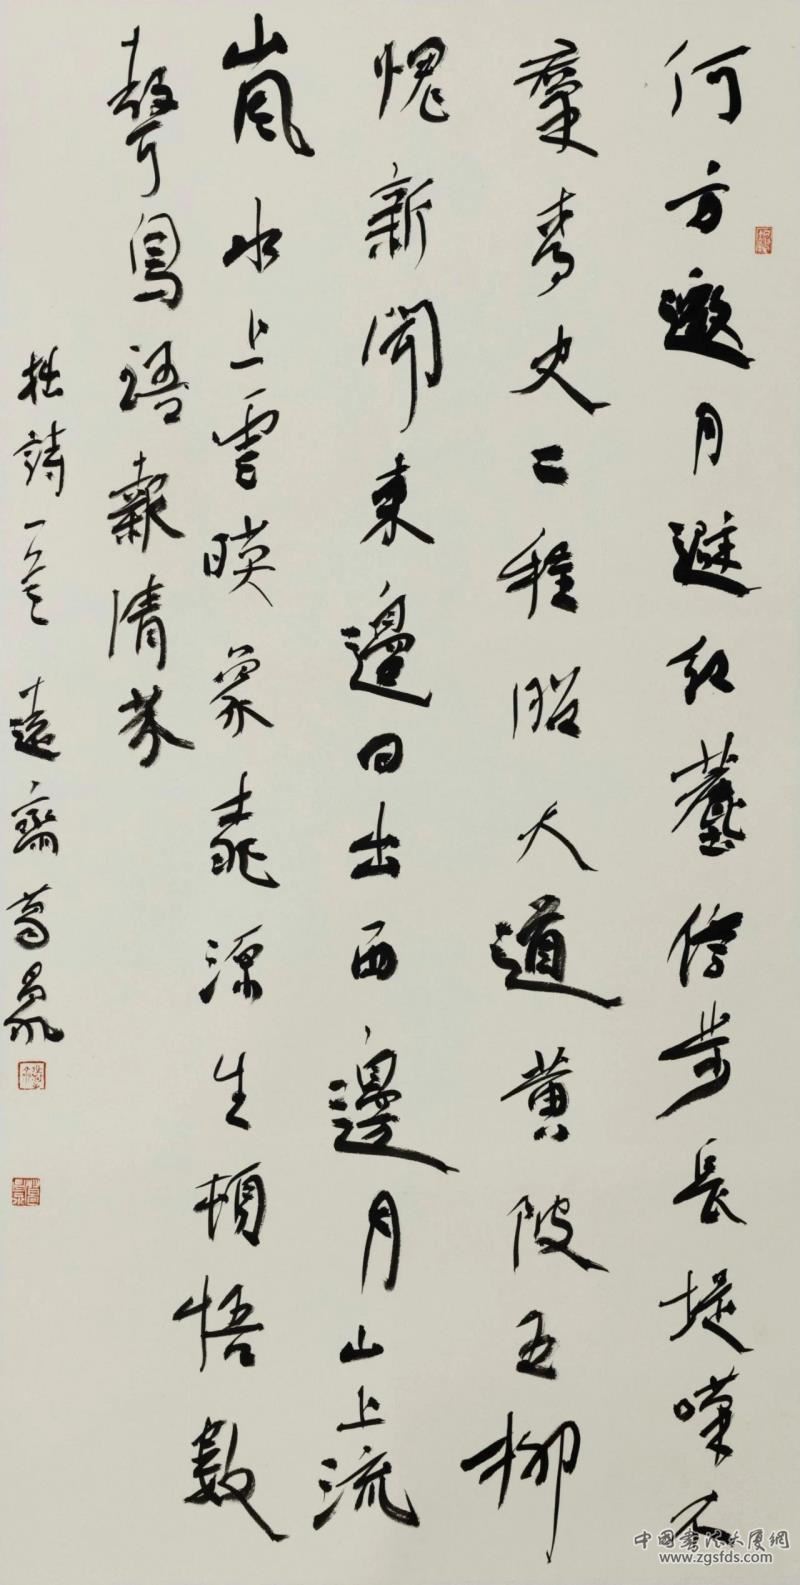 何方邀月避紅塵停步長堤嘆不
羣青史二程昭大道黄陂五柳
愧新聞東邊日出西邊月山上流
嵐水上雲暎象源生頓悟數
聲鳥語報清芬
拙詩一遠齋葛
中國書法大厦網
www.zgsfds.com